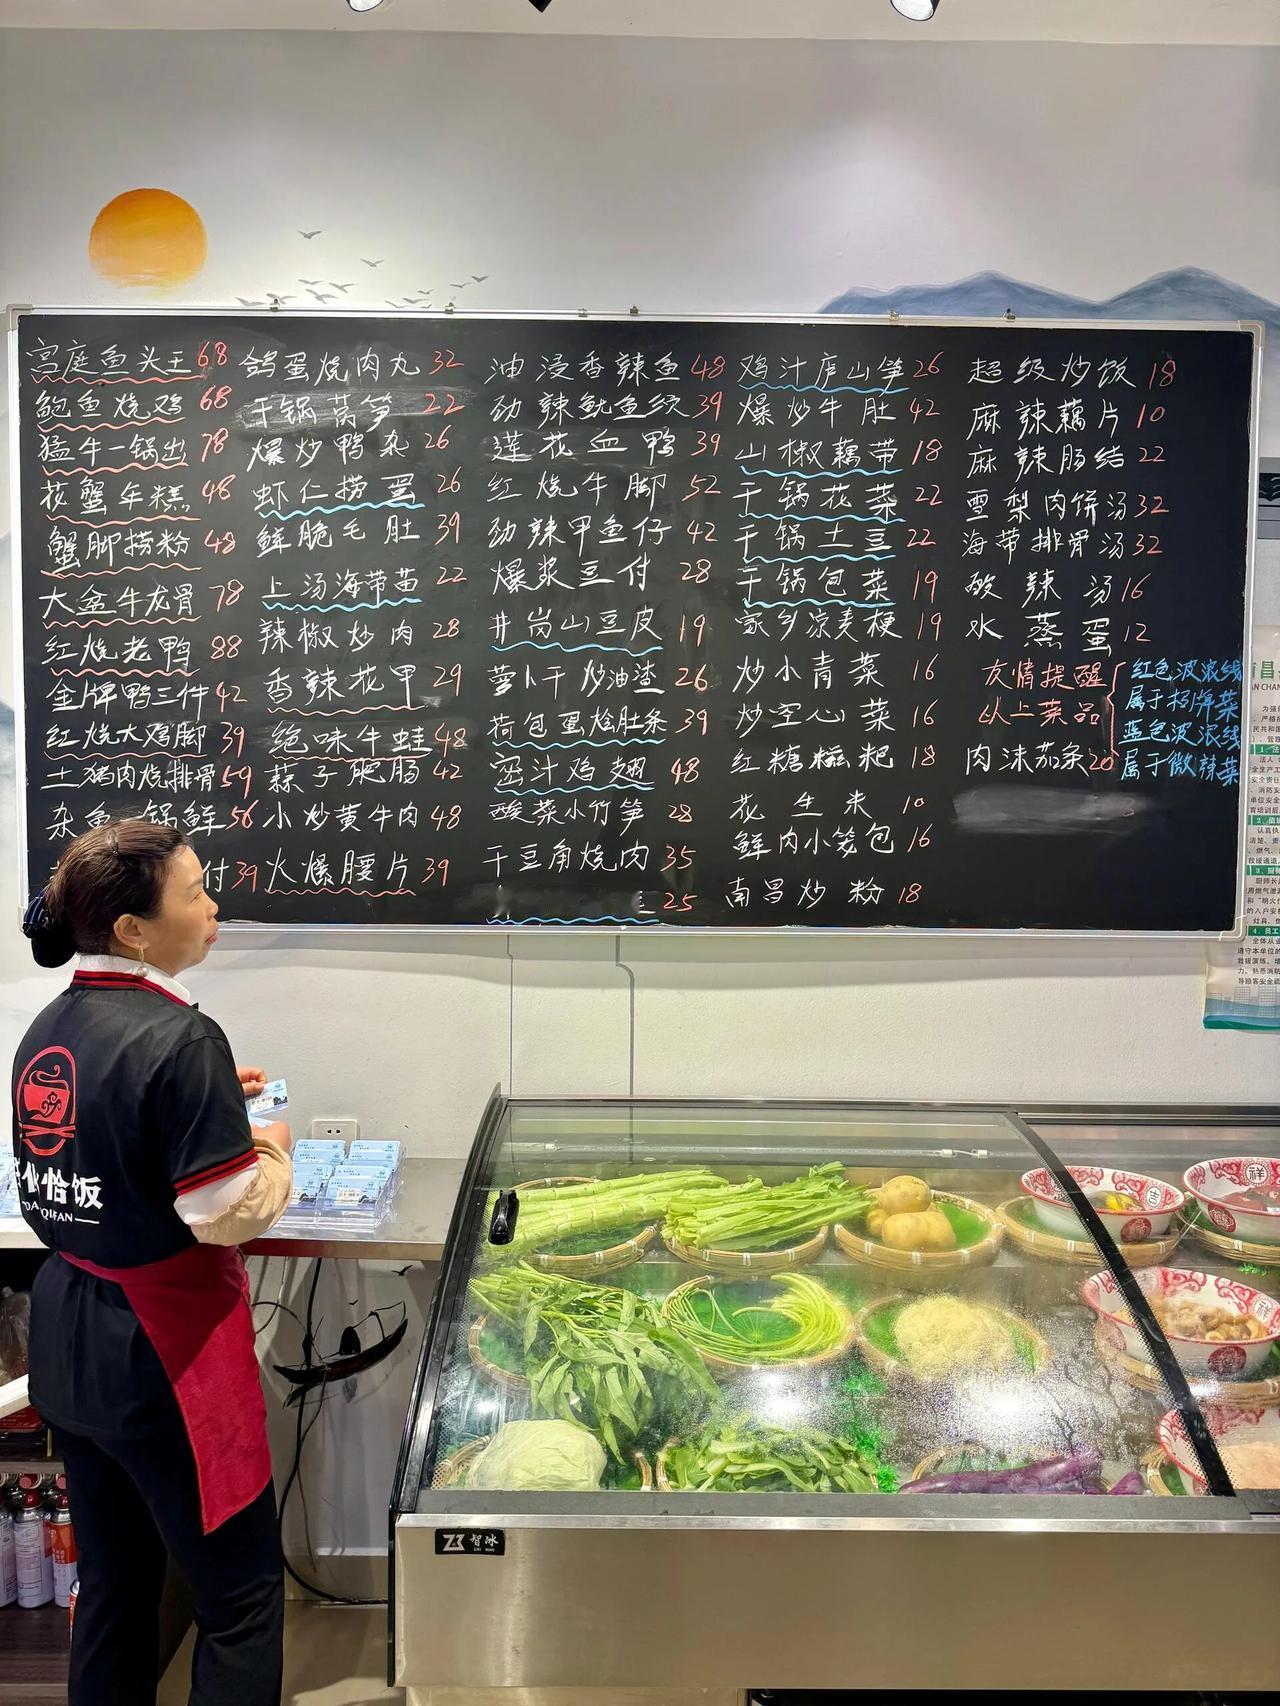 宫庭鱼头王 68
鲍鱼烧鸡 68
猛牛一锅出 78
花蟹年糕 48
蟹脚捞粉 48
大盆牛龙骨 78
红烧老鸭 88
金牌鸭三件 42
红烧大鸡脚 39
土猪肉烧排骨 59
杂鱼一锅鲜 56
付 39
鸽蛋烧肉丸 32
干锅莴笋 22
爆炒鸭杂 26
虾仁捞蛋 26
鲜脆毛肚 39
上汤海带苗 22
辣椒炒肉 28
香辣花甲 29
绝味牛蛙 48
蒜子肥肠 42
小炒黄牛肉 48
火爆腰片 39
油浸香辣鱼 48
劲辣鱿鱼须 39
莲花血鸭 39
红烧牛脚 52
劲辣甲鱼仔 42
爆浆豆付 28
井岗山豆皮 19
萝卜干炒油渣 26
荷包蛋烩肚条 39
蜜汁鸡翅 48
酸菜小竹笋 28
干豆角烧肉 35
25
鸡汁庐山笋 26
爆炒牛肚 42
山椒藕带 18
干锅花菜 22
干锅土豆 22
干锅包菜 19
家乡凉麦梗 19
炒小青菜 16
炒空心菜 16
红糖糍粑 18
花生米 10
鲜肉小笼包 16
南昌炒粉 18
超级炒饭 18
麻辣藕片 10
麻辣肠结 22
雪梨肉饼汤 32
海带排骨汤 32
酸辣汤 16
水蒸蛋 12
友情提醒
以上菜品
红色波浪线
属于招牌菜
蓝色波浪线
属于微辣菜
肉沫茄条 20
恰饭
智冰
吉
祥